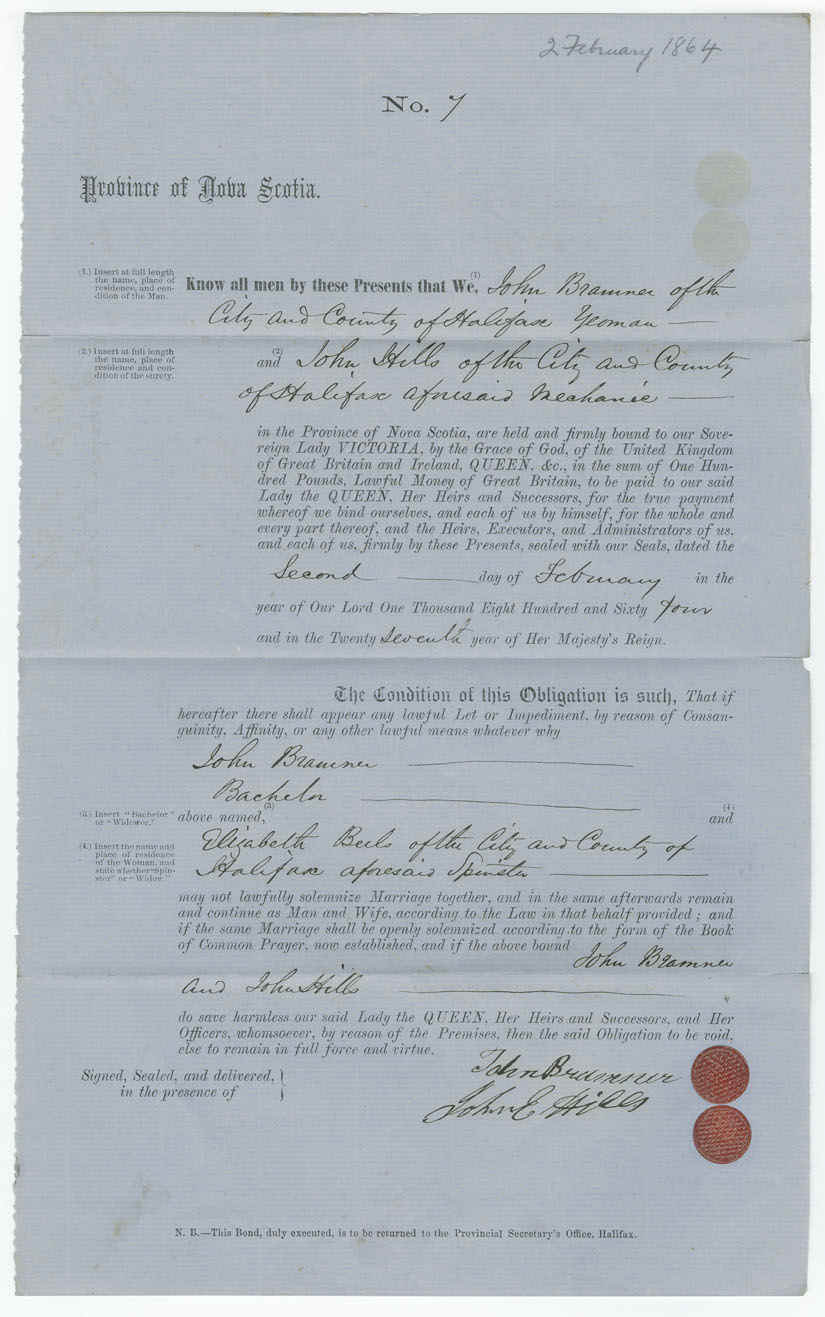 2 February 1864
No. 7
Province of Nova Scotia.
(1.) Insert at full length
the name, place of
residence, and con-
dition of the Man.
Know all men by these Presents that We, (1) John Bramner of the
City and County of Halifax Yeoman —
(2.) Insert at full length
the name, place of
residence and con-
dition of the surety.
and (2) John Hills of the City and County
of Halifax aforesaid Mechanic —
in the Province of Nova Scotia, are held and firmly bound to our Sove-
reign Lady VICTORIA, by the Grace of God, of the United Kingdom
of Great Britain and Ireland, QUEEN, &c., in the sum of One Hun-
dred Pounds, Lawful Money of Great Britain, to be paid to our said
Lady the QUEEN, Her Heirs and Successors, for the true payment
whereof we bind ourselves, and each of us by himself, for the whole and
every part thereof, and the Heirs, Executors, and Administrators of us,
and each of us, firmly by these Presents, sealed with our Seals, dated the
Second — day of February in the
year of Our Lord One Thousand Eight Hundred and Sixty four
and in the Twenty Seventh year of Her Majesty's Reign.
The Condition of this Obligation is such, That if
hereafter there shall appear any lawful Let or Impediment, by reason of Consan-
guinity, Affinity, or any other lawful means whatever why
John Bramner —
Bachelor —
(3.) Insert "Bachelor"
or "Widower."
above named, (3) and (4)
(4.) Insert the name and
place of residence
of the Woman, and
state whether "Spin-
ster" or "Widow."
Elizabeth Beels of the City and County of
Halifax aforesaid Spinster —
may not lawfully solemnize Marriage together, and in the same afterwards remain
and continue as Man and Wife, according to the Law in that behalf provided; and
if the same Marriage shall be openly solemnized according to the form of the Book
of Common Prayer, now established, and if the above bound
John Bramner
and John Hills —
do save harmless our said Lady the QUEEN, Her Heirs and Successors, and Her
Officers, whomsoever, by reason of the Premises, then the said Obligation to be void,
else to remain in full force and virtue.
Signed, Sealed, and delivered,
in the presence of
John Brumner
John E Hills
N. B.—This Bond, duly executed, is to be returned to the Provincial Secretary's Office, Halifax.